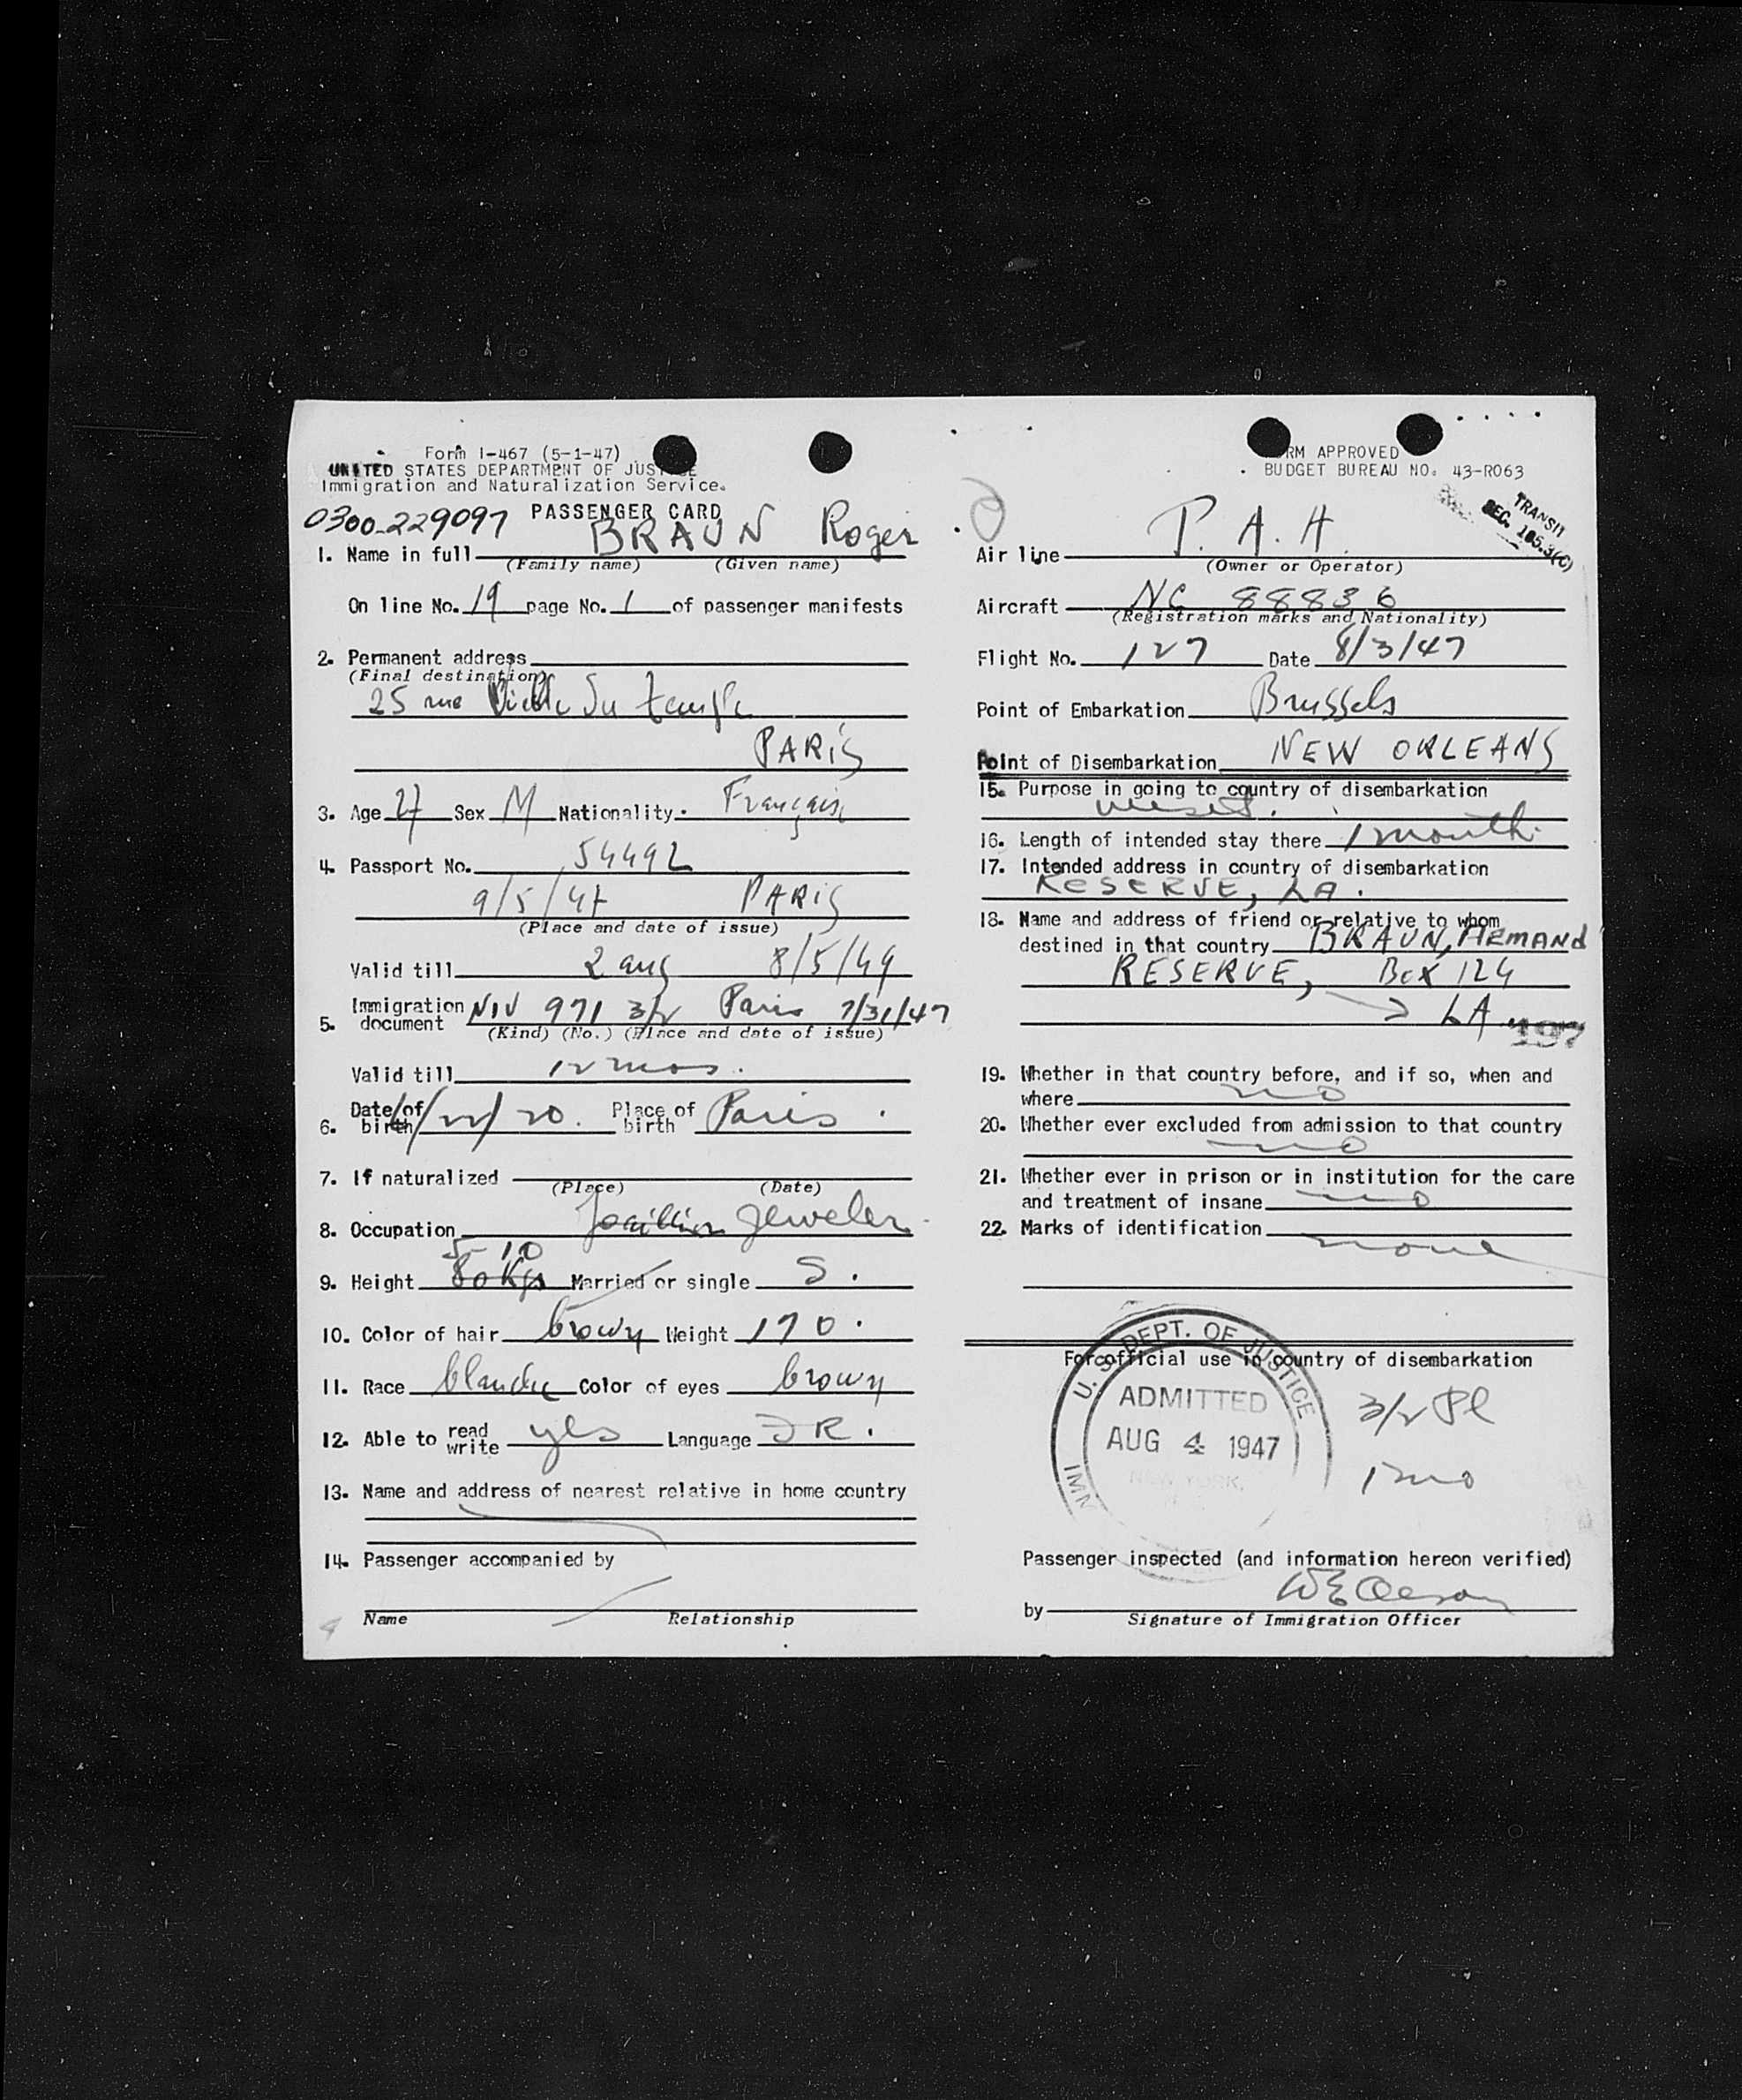 Form I-467 (5-1-47)
UNITED STATES DEPARTMENT OF JUSTICE
Immigration and Naturalization Service.
0300-229097 PASSENGER CARD
1. Name in full BRAUN Roger
(Family name) (Given name)
On line No. 19 page No. 1 of passenger manifests
2. Permanent address
(Final destination)
25 rue Vieille du temple
PARIS
3. Age 27 Sex M Nationality. Française
4. Passport No. 54492
9/5/47 PARIS
(Place and date of issue)
Valid till 8/5/49
5. Immigration document NIV 971 3/2 Paris 7/31/47
(Kind) (No.) (Place and date of issue)
Valid till 12 mos.
6. Date of birth 6/22/20. Place of birth Paris.
7. If naturalized
(Place) (Date)
8. Occupation Joaillier Jeweler
5-10
9. Height 80 Kgs Married or single S.
10. Color of hair brown Weight 170.
11. Race blanche Color of eyes brown
12. Able to read write yes Language FR.
13. Name and address of nearest relative in home country
14. Passenger accompanied by
Name Relationship
FORM APPROVED
BUDGET BUREAU NO. 43-R063
TRANSIT
SEC. 165.3(C)
Air line P.A.A.
(Owner or Operator)
Aircraft NC 88836
(Registration marks and Nationality)
Flight No. 127 Date 8/3/47
Point of Embarkation Brussels
Point of Disembarkation NEW ORLEANS
15. Purpose in going to country of disembarkation
16. Length of intended stay there 1 month.
17. Intended address in country of disembarkation
RESERVE, LA.
18. Name and address of friend or relative to whom
destined in that country BRAUN, ARMAND
RESERVE, Box 124
LA.
197
19. Whether in that country before, and if so, when and
where no
20. Whether ever excluded from admission to that country
no
21. Whether ever in prison or in institution for the care
and treatment of insane no
22. Marks of identification none
For official use in country of disembarkation
U. S. DEPT. OF JUSTICE
ADMITTED
AUG 4 1947
NEW YORK,
IMM
3/2 Pl
1 mo
Passenger inspected (and information hereon verified)
by
Signature of Immigration Officer